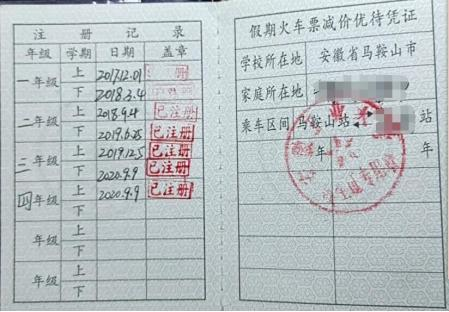 注册记录
年级 学期 日期 盖章
一年级 上 2017.12.01 册
下 2018.3.4
二年级 上 2018.9.4 已注册
下 2019.6.25 已注册
三年级 上 2019.12.5 已注册
下 2020.9.9 已注册
四年级 上 2020.9.9 已注册
下
年级 上
下
年级 上
下
年级 上
下
假期火车票减价优待凭证
学校所在地 安徽省马鞍山市
家庭所在地
乘车区间 马鞍山站 站
年 年
业大
学生证专用章